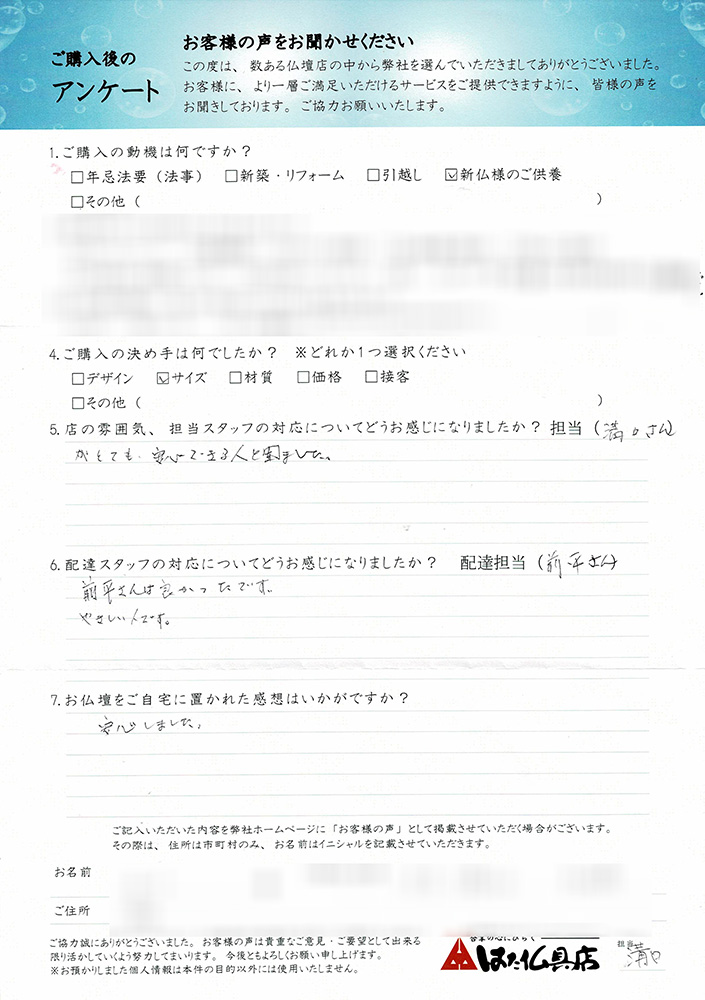 ご購入後の
アンケート
お客様の声をお聞かせください
この度は、数ある仏壇店の中から弊社を選んでいただきましてありがとうございました。
お客様に、より一層ご満足いただけるサービスをご提供できますように、皆様の声を
お聞きしております。ご協力お願いいたします。
1.ご購入の動機は何ですか？
□年忌法要（法事） □新築・リフォーム □引越し ☑新仏様のご供養
□その他（ ）
4.ご購入の決め手は何でしたか？ ※どれか1つ選択ください
□デザイン ☑サイズ □材質 □価格 □接客
□その他（ ）
5.店の雰囲気、担当スタッフの対応についてどうお感じになりましたか？担当（溝口さん
がとても 安心できる人と思ました。
6.配達スタッフの対応についてどうお感じになりましたか？ 配達担当（前平さん）
前平さんは良かったです。
やさしい人です。
7.お仏壇をご自宅に置かれた感想はいかがですか？
安心しました。
ご記入いただいた内容を弊社ホームページに「お客様の声」として掲載させていただく場合がございます。
その際は、住所は市町村のみ、お名前はイニシャルを記載させていただきます。
お名前
ご住所
ご協力誠にありがとうございました。お客様の声は貴重なご意見・ご要望として出来る
限り活かしていくよう努力してまいります。今後ともよろしくお願い申し上げます。
※お預かりしました個人情報は本件の目的以外には使用いたしません。
はた仏具店
担当
溝口